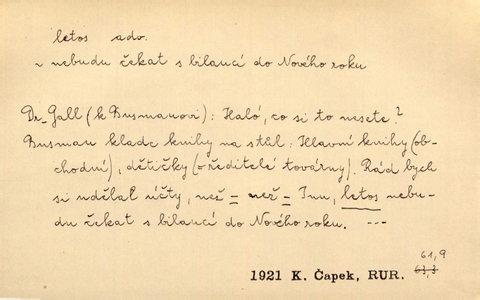 letos adv.
v nebudu čekat s bilancí do Nového roku
Dr Gall (k Busmanovi): Haló, co si to nesete?
Busman klade knihy na stůl: Hlavní knihy (ob-
chodní), dětičky (ředitelé továrny). Rád bych
si udělal účty, než = než = Inu, letos nebu-
du čekat s bilancí do Nového roku. ---
61,9
1921 K. Čapek, RUR. 63,3